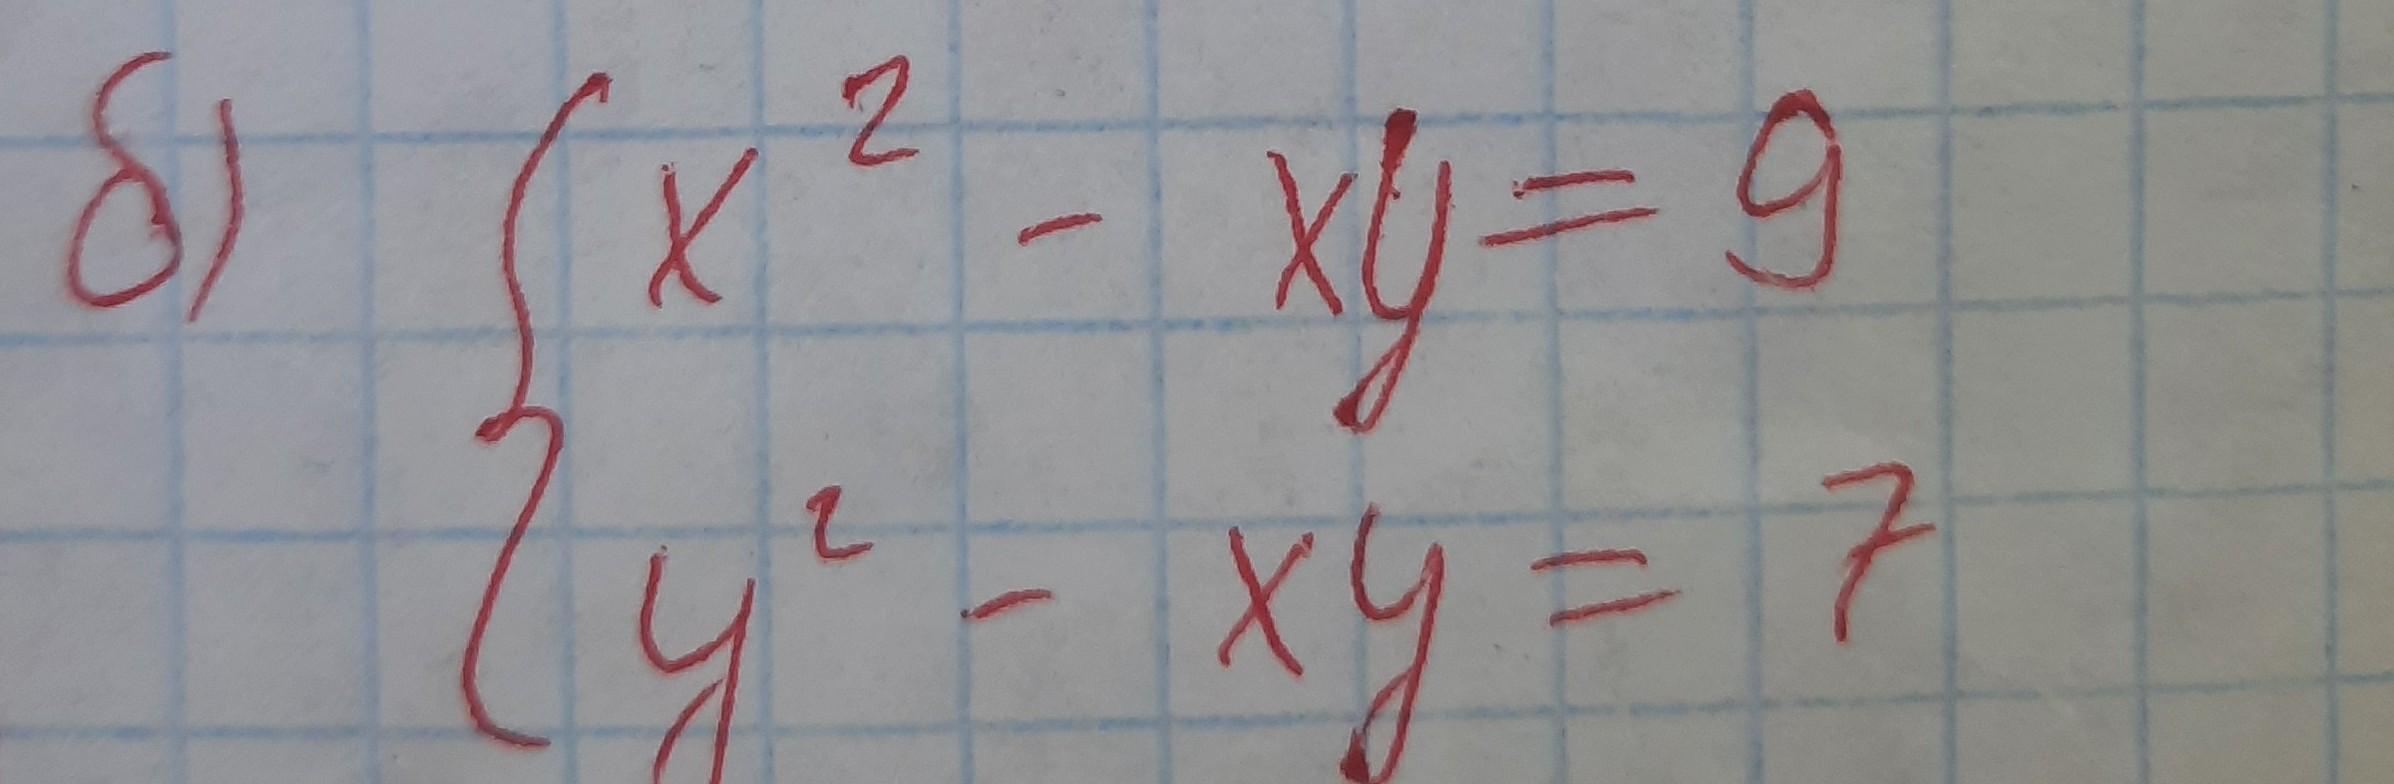 б) { x² - xy = 9
y² - xy = 7